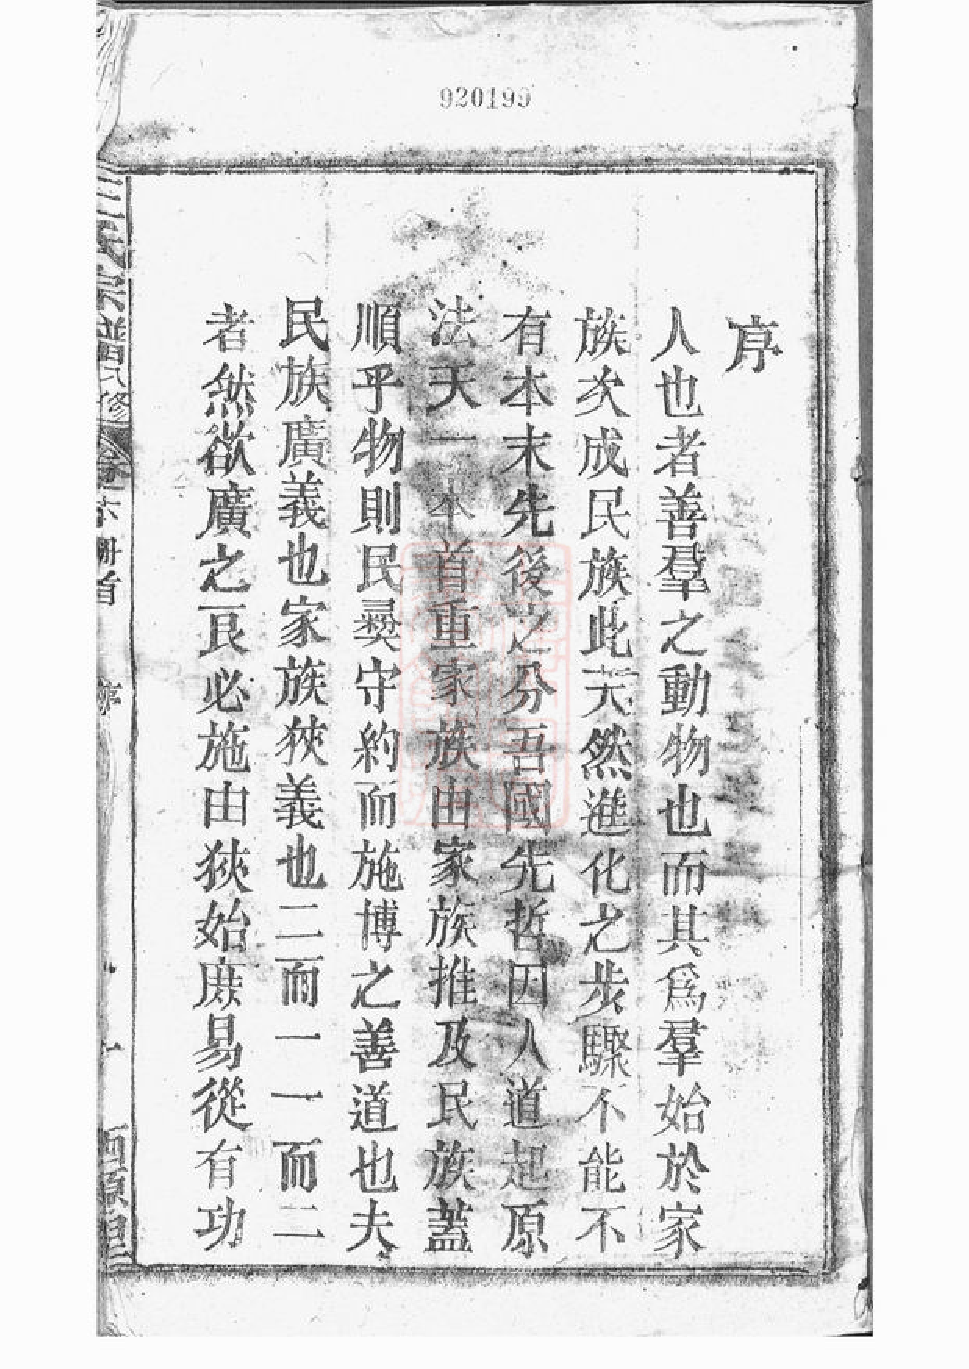 920199
序
人也者善羣之動物也而其爲羣始於家
族次成民族此天然進化之步驟不能不
有本末先後之分吾國先哲因人道起原
法天一本首重家族由家族推及民族蓋
順乎物則民彛守約而施博之善道也夫
民族廣義也家族狹義也二而一一而二
者然欲廣之艮必施由狹始庶易從有功
氏宗譜 修 卷 首 序